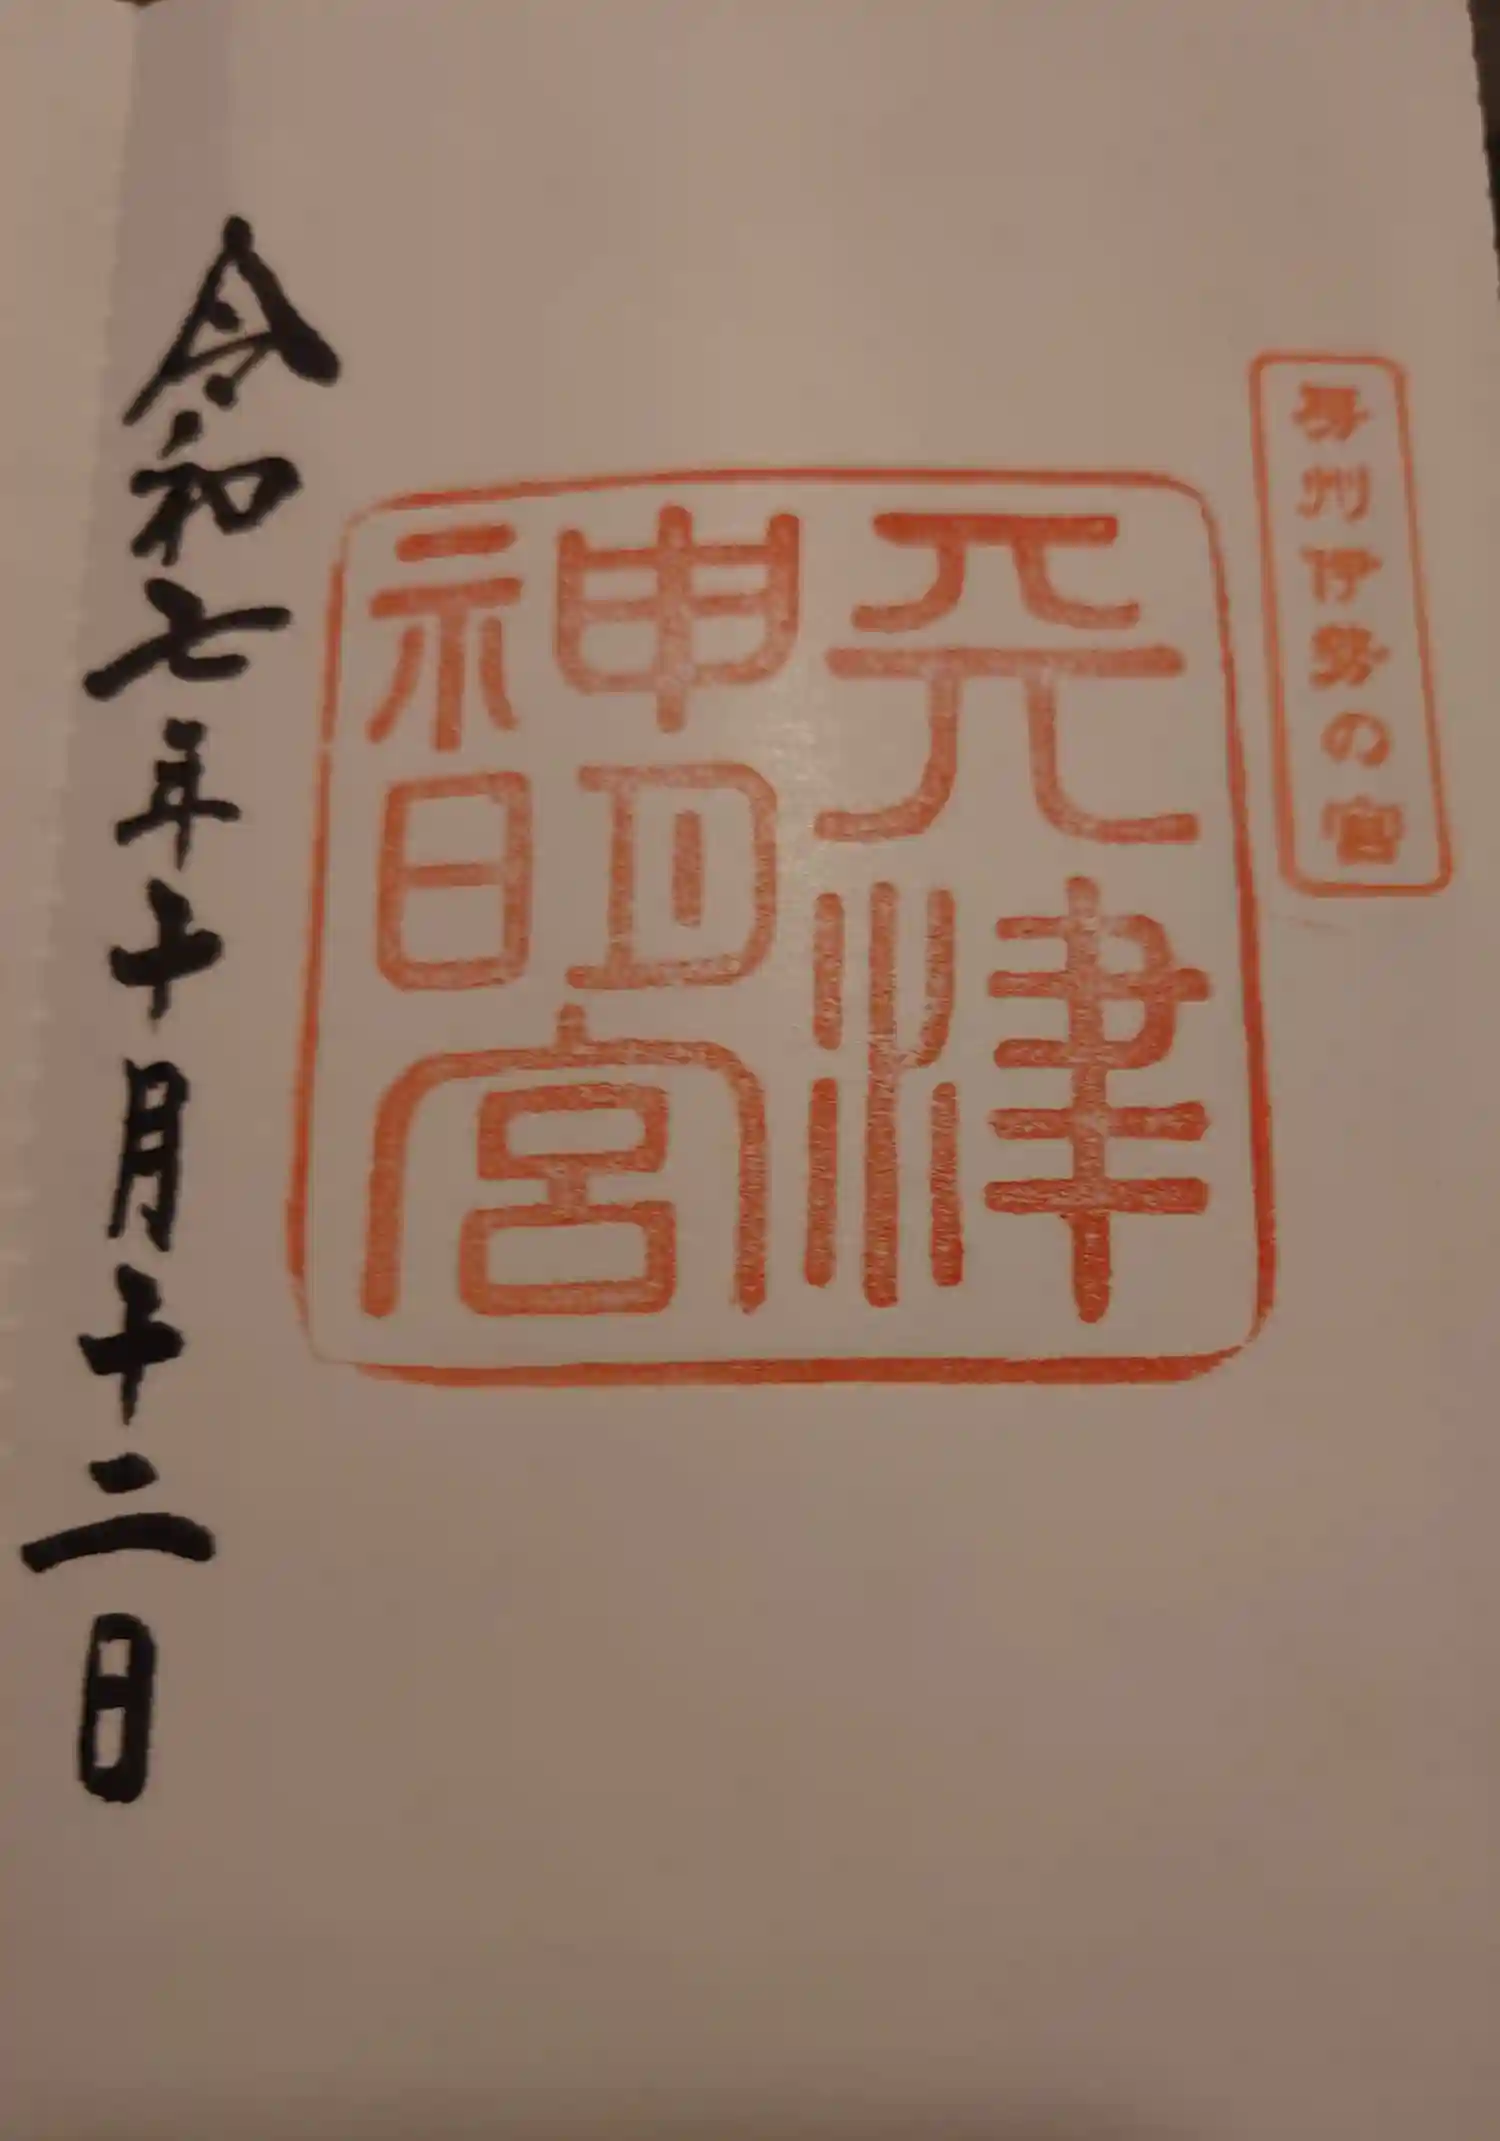 房州伊勢の宮
天津
神明宮
令和七年十月十二日